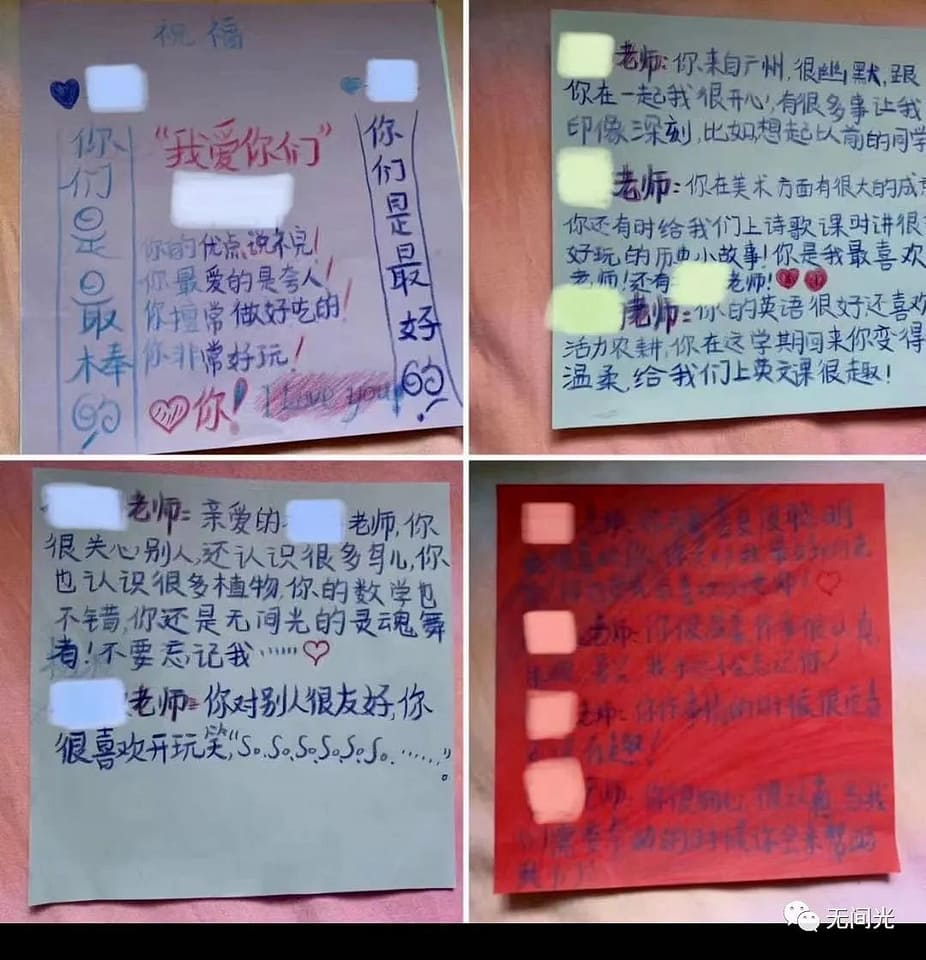 祝福
你们是最棒的!
"我爱你们"
你的优点说不完!
你最爱的是夸人!
你擅常做好吃的!
你非常好玩!
你!
I Love you!
你们是最好的!
老师:你来自广州,很幽默,跟
你在一起我很开心,有很多事让我
印像深刻,比如,想起以前的同学
老师:你在美术方面有很大的成
你还有时给我们上诗歌课时讲很
好玩的历史小故事!你是我最喜欢
老师!还有 老师!
老师:你的英语很好还喜欢
活力农耕,你在这学期回来你变得
温柔,给我们上英文课很趣!
老师:亲爱的 老师,你
很关心别人,还认识很多鸟儿,你
也认识很多植物,你的数学也
不错,你还是无间光的灵魂舞
者!不要忘记我……
老师:你对别人很友好,你
很喜欢开玩笑,"So.So.So.So.So.So.……"。
老师:你很 你 很认真,
忘记你!
老师:你做事情的时候很认真
有趣!
老师:你很细心,很认真,当我
们需要 的时候你会来帮助
我们!
无间光